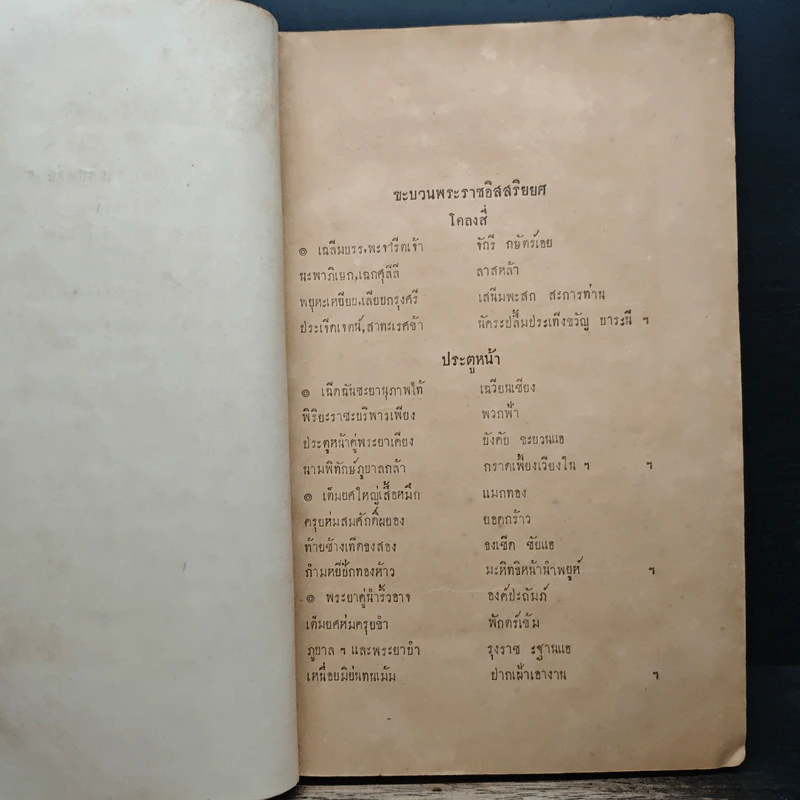 ขะบวนพระราชอิสสริยยศ
โคลงสี่
๏ เฉลีมยรร,พะจารีตเจ้า จักรี กษัตร์เฮย
นะพาภิเษก,เฉกศุลีลี ลาสหล้า
พยุหะเหยียบ,เลียบกรุงศรี เสนีมพะสก สะการท่าน
ประเจีดเจตน์,สาทะเรศซ้า นัคระปลื้มประเทีงขวัญ ยาระนี ฯ
ประตูหน้า
๏ เฉีดฉันชะยานุภาพไท้ เฉวียนเชียง
พิริยะราชะบริพารเพียง พวกฟ้า
ประตูหน้าคู่พระยาเคียง ยังคัย ขะบวนแฮ
นามพิทักษ์ภูบาลกล้า กราดเฟี้ยงเวียงใน ฯ ฯ
๏ เต็มยศใหญ่เสื้อหมึก แมกทอง
ครุยห่มสมศักดิ์ผยอง ยอดกร้าว
ท้ายช้างเทีดองสอง องเชีด ชัยแฮ
กำมหยี่ปักทองห้าว มะหิทธิหน้านำพยุห์ ฯ
๏ พระยาคู่นำริ้วอาจ องค์ปะถัมภ์
เต็มยศห่มครุยขำ พักตร์เข้ม
ภูบาล ฯ และพระยายำ รุงราช ะฐานแฮ
เหนื่อยมิย่นทนเม้ม ปากเฝ้าเอางาน ฯ